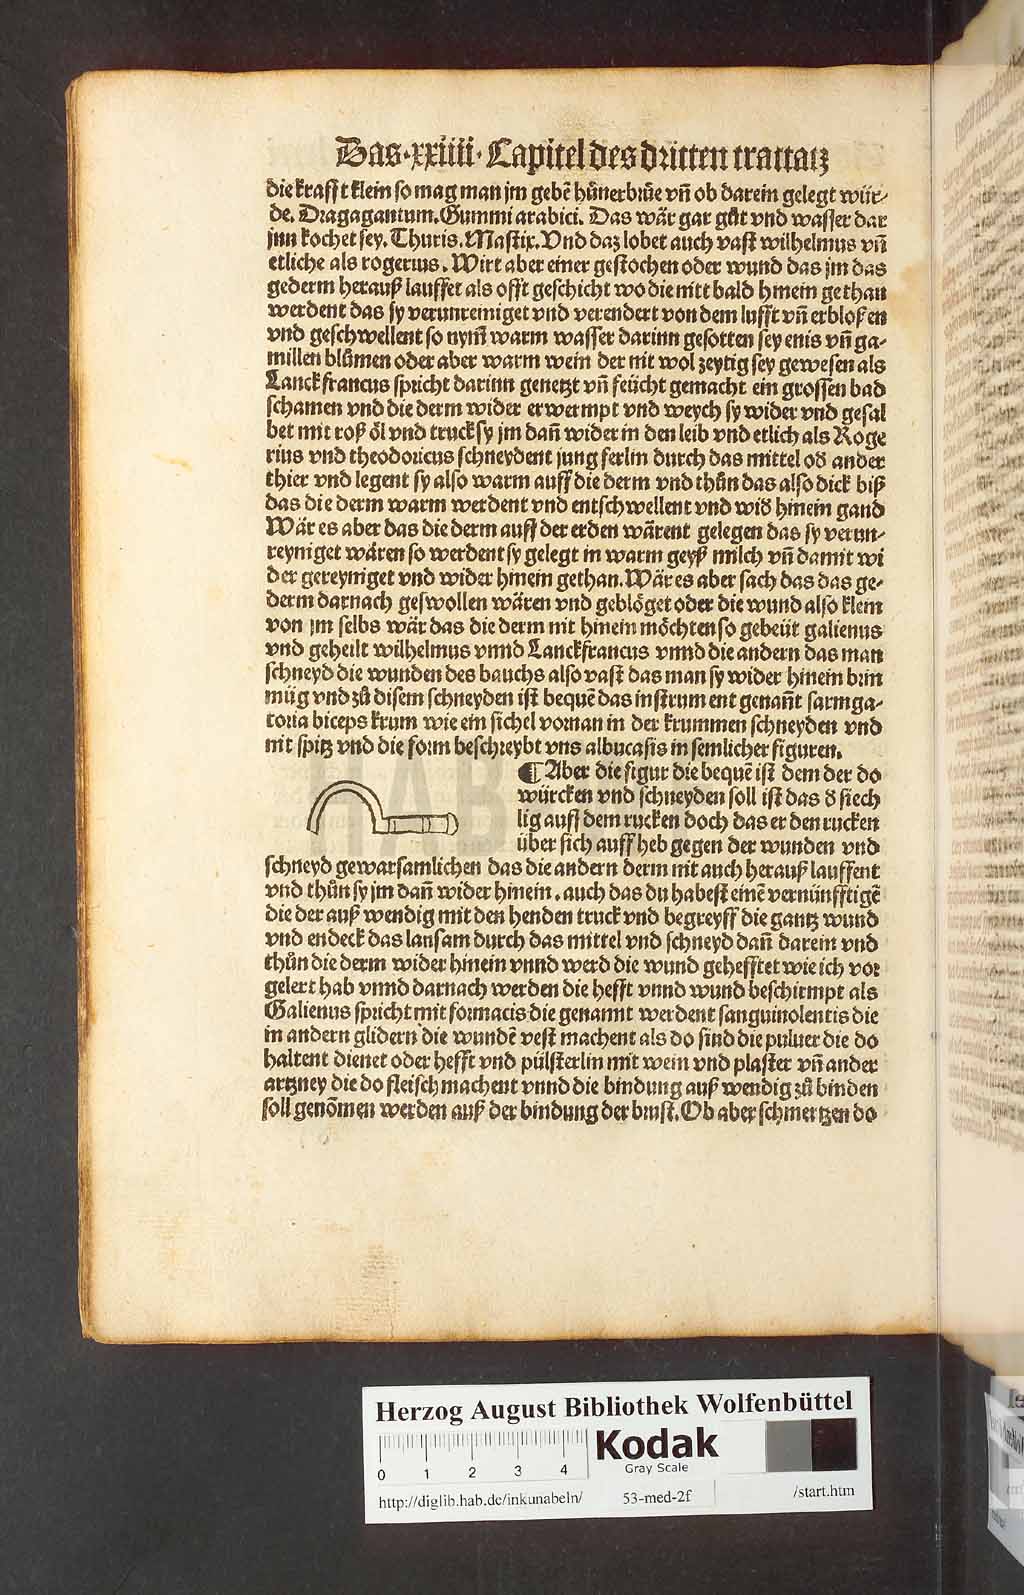 Das·xxiiii·Capitel des dritten tractatz
die krafft klein so mag man jm gebẽ hůnerbrüe vñ ob darein gelegt wür⸗
de. Dragagantum. Gummi arabici. Das wär gar gůt vnd wasser dar
jnn kochet sey. Thuris. Mastix. Vnd daz lobet auch vast wilhelmus vñ
etliche als rogerius. Wirt aber einer gestochen oder wund das jm das
gederm herauß lauffet als offt geschicht wo die nitt bald hinein gethan
werdent das sy verunreiniget vnd verendert von dem lufft vñ erbloßen
vnd geschwellent so nym̃ warm wasser darinn gesotten sey enis vñ ga⸗
millen blůmen oder aber warm wein der nit wol zeytig sey gewesen als
Lanckfrancus spricht darinn genetzt vñ feücht gemacht ein grossen bad
schamen vnd die derm wider erwermpt vnd weych sy wider vnd gesal
bet mit roß öl vnd truck sy jm dañ wider in den leib vnd etlich als Roge
rius vnd theodoricus schneydent jung ferlin durch das mittel od ander
thier vnd legent sy also warm auff die derm vnd thůn das also dick biß
das die derm warm werdent vnd entschwellent vnd wid hinein gand
Wär es aber das die derm auff der erden wärent gelegen das sy verun⸗
reyniget wären so werdent sy gelegt in warm geyß milch vñ damit wi
der gereyniget vnd wider hinein gethan. Wär es aber sach das das ge⸗
derm darnach geswollen wären vnd geblöget oder die wund also klein
von jm selbs wär das die derm nit hinein möchten so gebeüt galienus
vnd geheilt wilhelmus vnnd Lanckfrancus vnnd die andern das man
schneyd die wunden des bauchs also vast das man sy wider hinein brin
müg vnd zů disem schneyden ist bequẽ das instrument genañt sarmga⸗
toria biceps krum wie ein sichel vornan in der krummen schneyden vnd
nit spitz vnd die form beschreybt vns albucasis in semlicher figuren.
¶ Aber die figur die bequẽ ist dem der do
würcken vnd schneyden soll ist das d siech
lig auff dem rucken doch das er den rucken
über sich auff heb gegen der wunden vnd
schneyd gewarsamlichen das die andern derm nit auch herauß lauffent
vnd thůn sy jm dañ wider hinein. auch das du habest einẽ vernünfftigẽ
die der auß wendig mit den henden truck vnd begreyff die gantz wund
vnd endeck das lansam durch das mittel vnd schneyd dañ darein vnd
thůn die derm wider hinein vnnd werd die wund gehefftet wie ich vor
gelert hab vnnd darnach werden die hefft vnnd wund beschirmpt als
Galienus spricht mit formacis die genannt werdent sanguinolentis die
in andern glidern die wundẽ vest machent als do sind die puluer die do
haltent dienet oder hefft vnd pülsterlin mit wein vnd plaster vñ ander
artzney die do fleisch machent vnnd die bindung auß wendig zů binden
soll genõmen werden auß der bindung der brust. Ob aber schmertzen do
HAB
Herzog August Bibliothek Wolfenbüttel
0 1 2 3 4
Kodak
Gray Scale
http://diglib.hab.de/inkunabeln/ 53-med-2f /start.htm